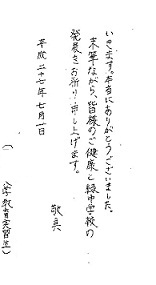 いきます。本当にありがとうございました。
末筆ながら、皆様のご健康と緑中学校の
発展をお祈り申し上げます。
敬具
平成二十七年七月一日
(　学教育実習生)